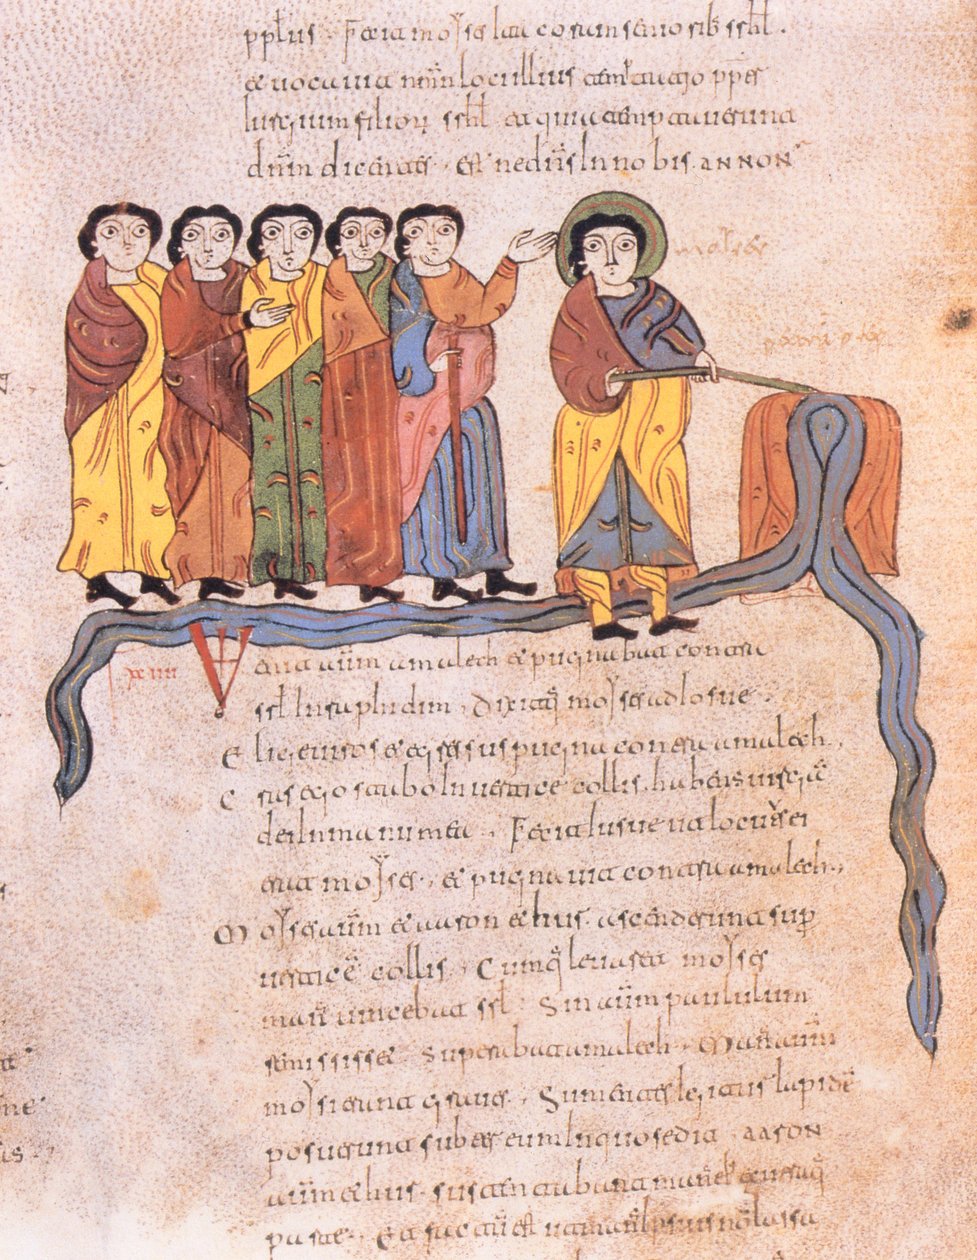 pplus · Fecit moyses ita coram seniorib srhl ·
et uocauit nmn loci illius temtatjo ppter
iurgium filior srhl et quia temptauerunt
dnm dicentes · Est ne dns in nobis · an non
moises
petra
xiiii Uenit aum amalech et pugnabat contra
srl in rapludim · dixitq moyses ad iosue ·
Elige uiros et egressus pugna contra amalech ·
Cras ego stabo in uertice collis · habens uirga
dei in manu mea · Fecit iosue ut locut ei
erat moyses · et pugnauit contra amalech ·
Moyses aum et aaron et hur ascenderunt sup
uertice collis · Cumq leuaret moyses
man uincebat srl · Sin aum paululum
remississet · superabat amalech · Manus aum
moysi erant graues · Sumentes igitur lapide
posuerunt subter eum in quo sedit · aaron
aum et hur · sustentabant man ex utraq
parte · Et factu est ut man ipsius n lassa